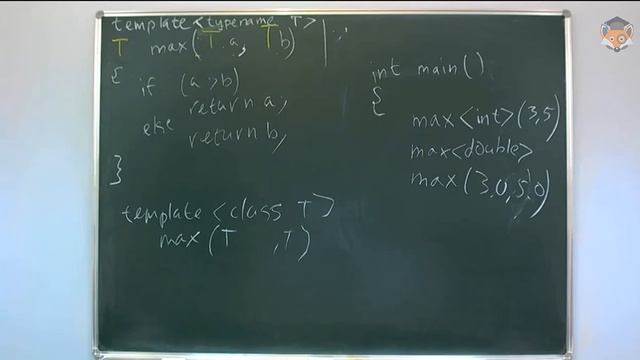 template <typename T>
T max(T a, T b)
{
if (a > b)
return a;
else
return b;
}
template <class T>
max(T , T)
int main()
{
max<int>(3,5)
max<double>
max(3.0, 5.0)